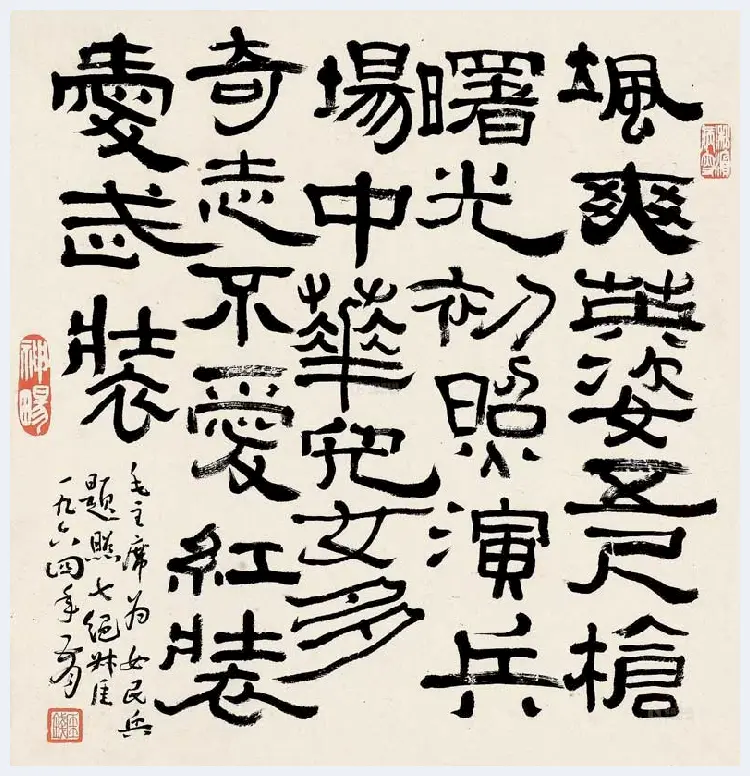 颯爽英姿五尺槍
曙光初照演兵
場中華兒女多
奇志不愛紅裝
愛武裝
毛主席为女民兵
題照七絕
一九六四年